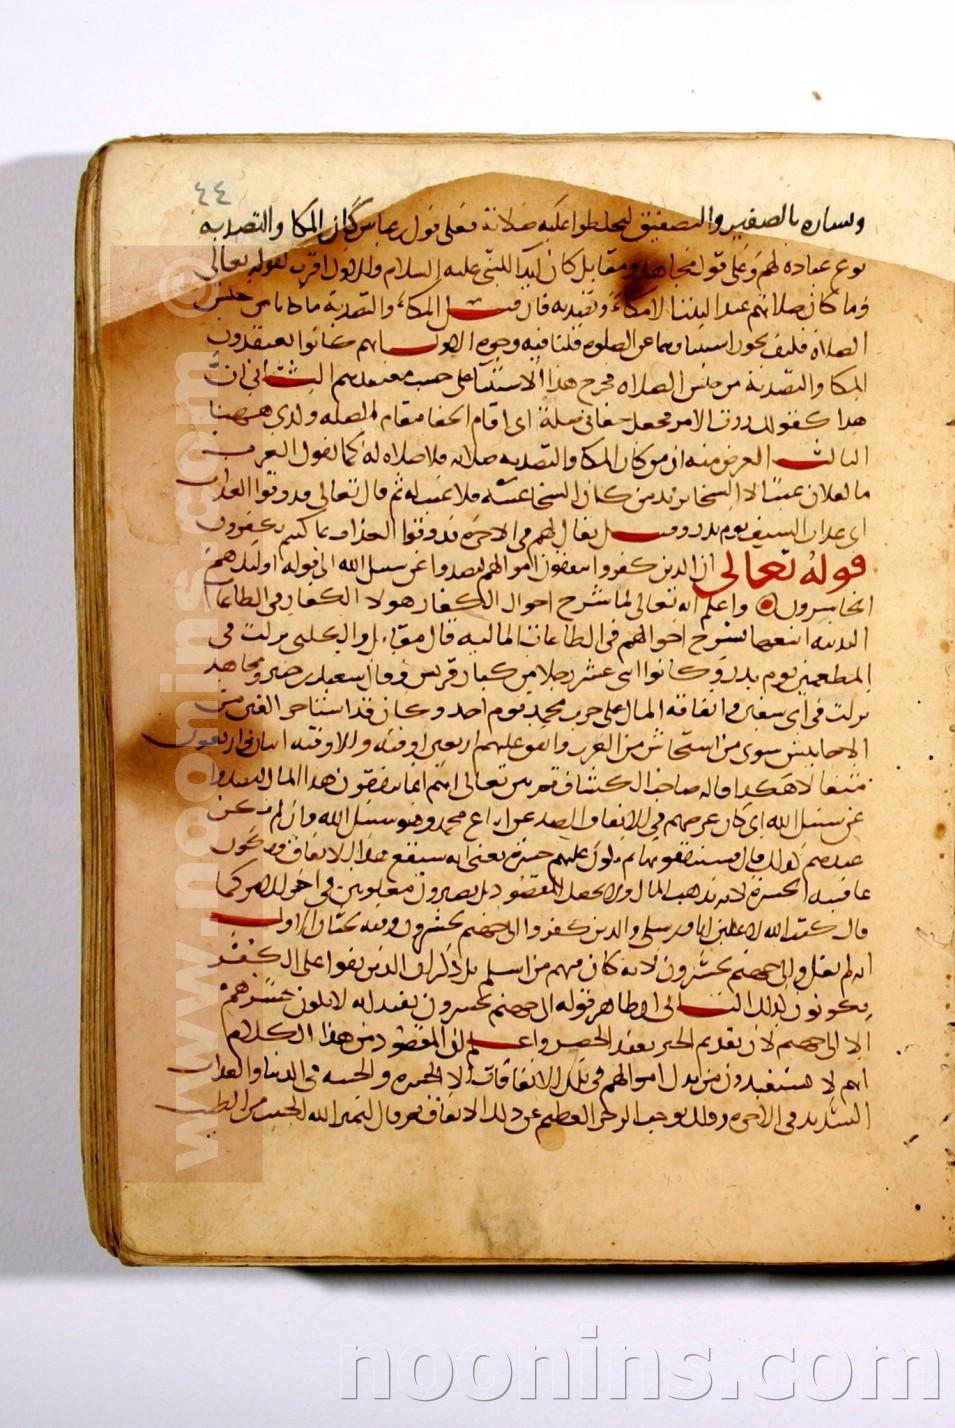 ٤٤
ويساره بالصفير والتصفيق ليخلطوا عليه صلاته فعلى قول ابن عباس كان المكا والتصديه
نوع عباده لهم وعلى قول مجاهد ومقاتل كان ايذا للنبي عليه السلام والاول اقرب لقوله تعالى
وما كان صلاتهم عند البيت الا مكاء وتصديه فان قيل المكاء والتصدية ما كانا من جنس
الصلاة فكيف يجوز استثناوهما عن الصلوه قلنا فيه وجوه الاول انهم كانوا يعتقدون
المكا والتصدية من جنس الصلاه فخرج هذا الاستثنا على حسب معتقدهم الثاني ان
هذا كقولك وددت الامير فجعل جفائي صلة اي اقام الجفا مقام الصله ولذي ههنا
الثالث الغرض منه ان من كان المكا والتصديه صلاته فلا صلاه له كما تقول العرب
ما لفلان عيب الا السخا يريد من كان السخا عيبه فلا عيب له ثم قال تعالى فذوقوا العذاب
اي عذاب السيف يوم بدر وقيل يقال لهم في الاخرة فذوقوا العذاب بما كنتم تكفرون
قوله تعالى ان الذين كفروا ينفقون اموالهم ليصدوا عن سبيل الله الى قوله اولئك هم
الخاسرون واعلم انه تعالى لما شرح احوال الكفار هولا الكفار في الطاعات
البدنيه اتبعها بشرح احوالهم في الطاعات الماليه قال مقاتل والكلبي نزلت في
المطعمين يوم بدر وكانوا اثنى عشر رجلا من كبار قريش وقال سعيد بن جبير ومجاهد
نزلت في ابي سفين وانفاقه المال على حرب محمد يوم احد وكان قد استاجر الفين من
الاحابيش سوى من استجاش من العرب وانفق عليهم اربعين اوقيه والاوقيه اثنان واربعون
مثقالا هكذا قاله صاحب الكشاف ثم بين تعالى انهم انما ينفقون هذا المال ليصدوا
عن سبيل الله اي كان غرضهم في الانفاق الصد عن اتباع محمد وهو سبيل الله وان لم يكن
عندهم كذلك قال فسينفقونها ثم تكون عليهم حسرة يعني انه سيقع هذا الانفاق ويكون
عاقبته الحسرة لانه يذهب المال ولا يحصل المقصود بل يصيرون مغلوبين في اخر الامر كما
قال كتب الله لاغلبن انا ورسلي والذين كفروا الى جهنم يحشرون وفيه بحثان الاول
انه لم يقل والى جهنم يحشرون لانه كان منهم من اسلم بل ذكر ان الذين بقوا على الكفر
يكونون كذلك الثاني ان ظاهر قوله الى جهنم يحشرون يفيد انه لا يكون حشرهم
الا الى جهنم لان تقديم الخبر يفيد الحصر واعلم ان المقصود من هذا الكلام
انهم لا يستفيدون من بذل اموالهم في تلك الانفاقات الا الحسره والخيبه في الدنيا والعذاب
الشديد في الاخره وذلك يوجب الزجر العظيم عن ذلك الانفاق ثم قال ليميز الله الخبيث من الطيب
www.noonins.com ©
noonins.com